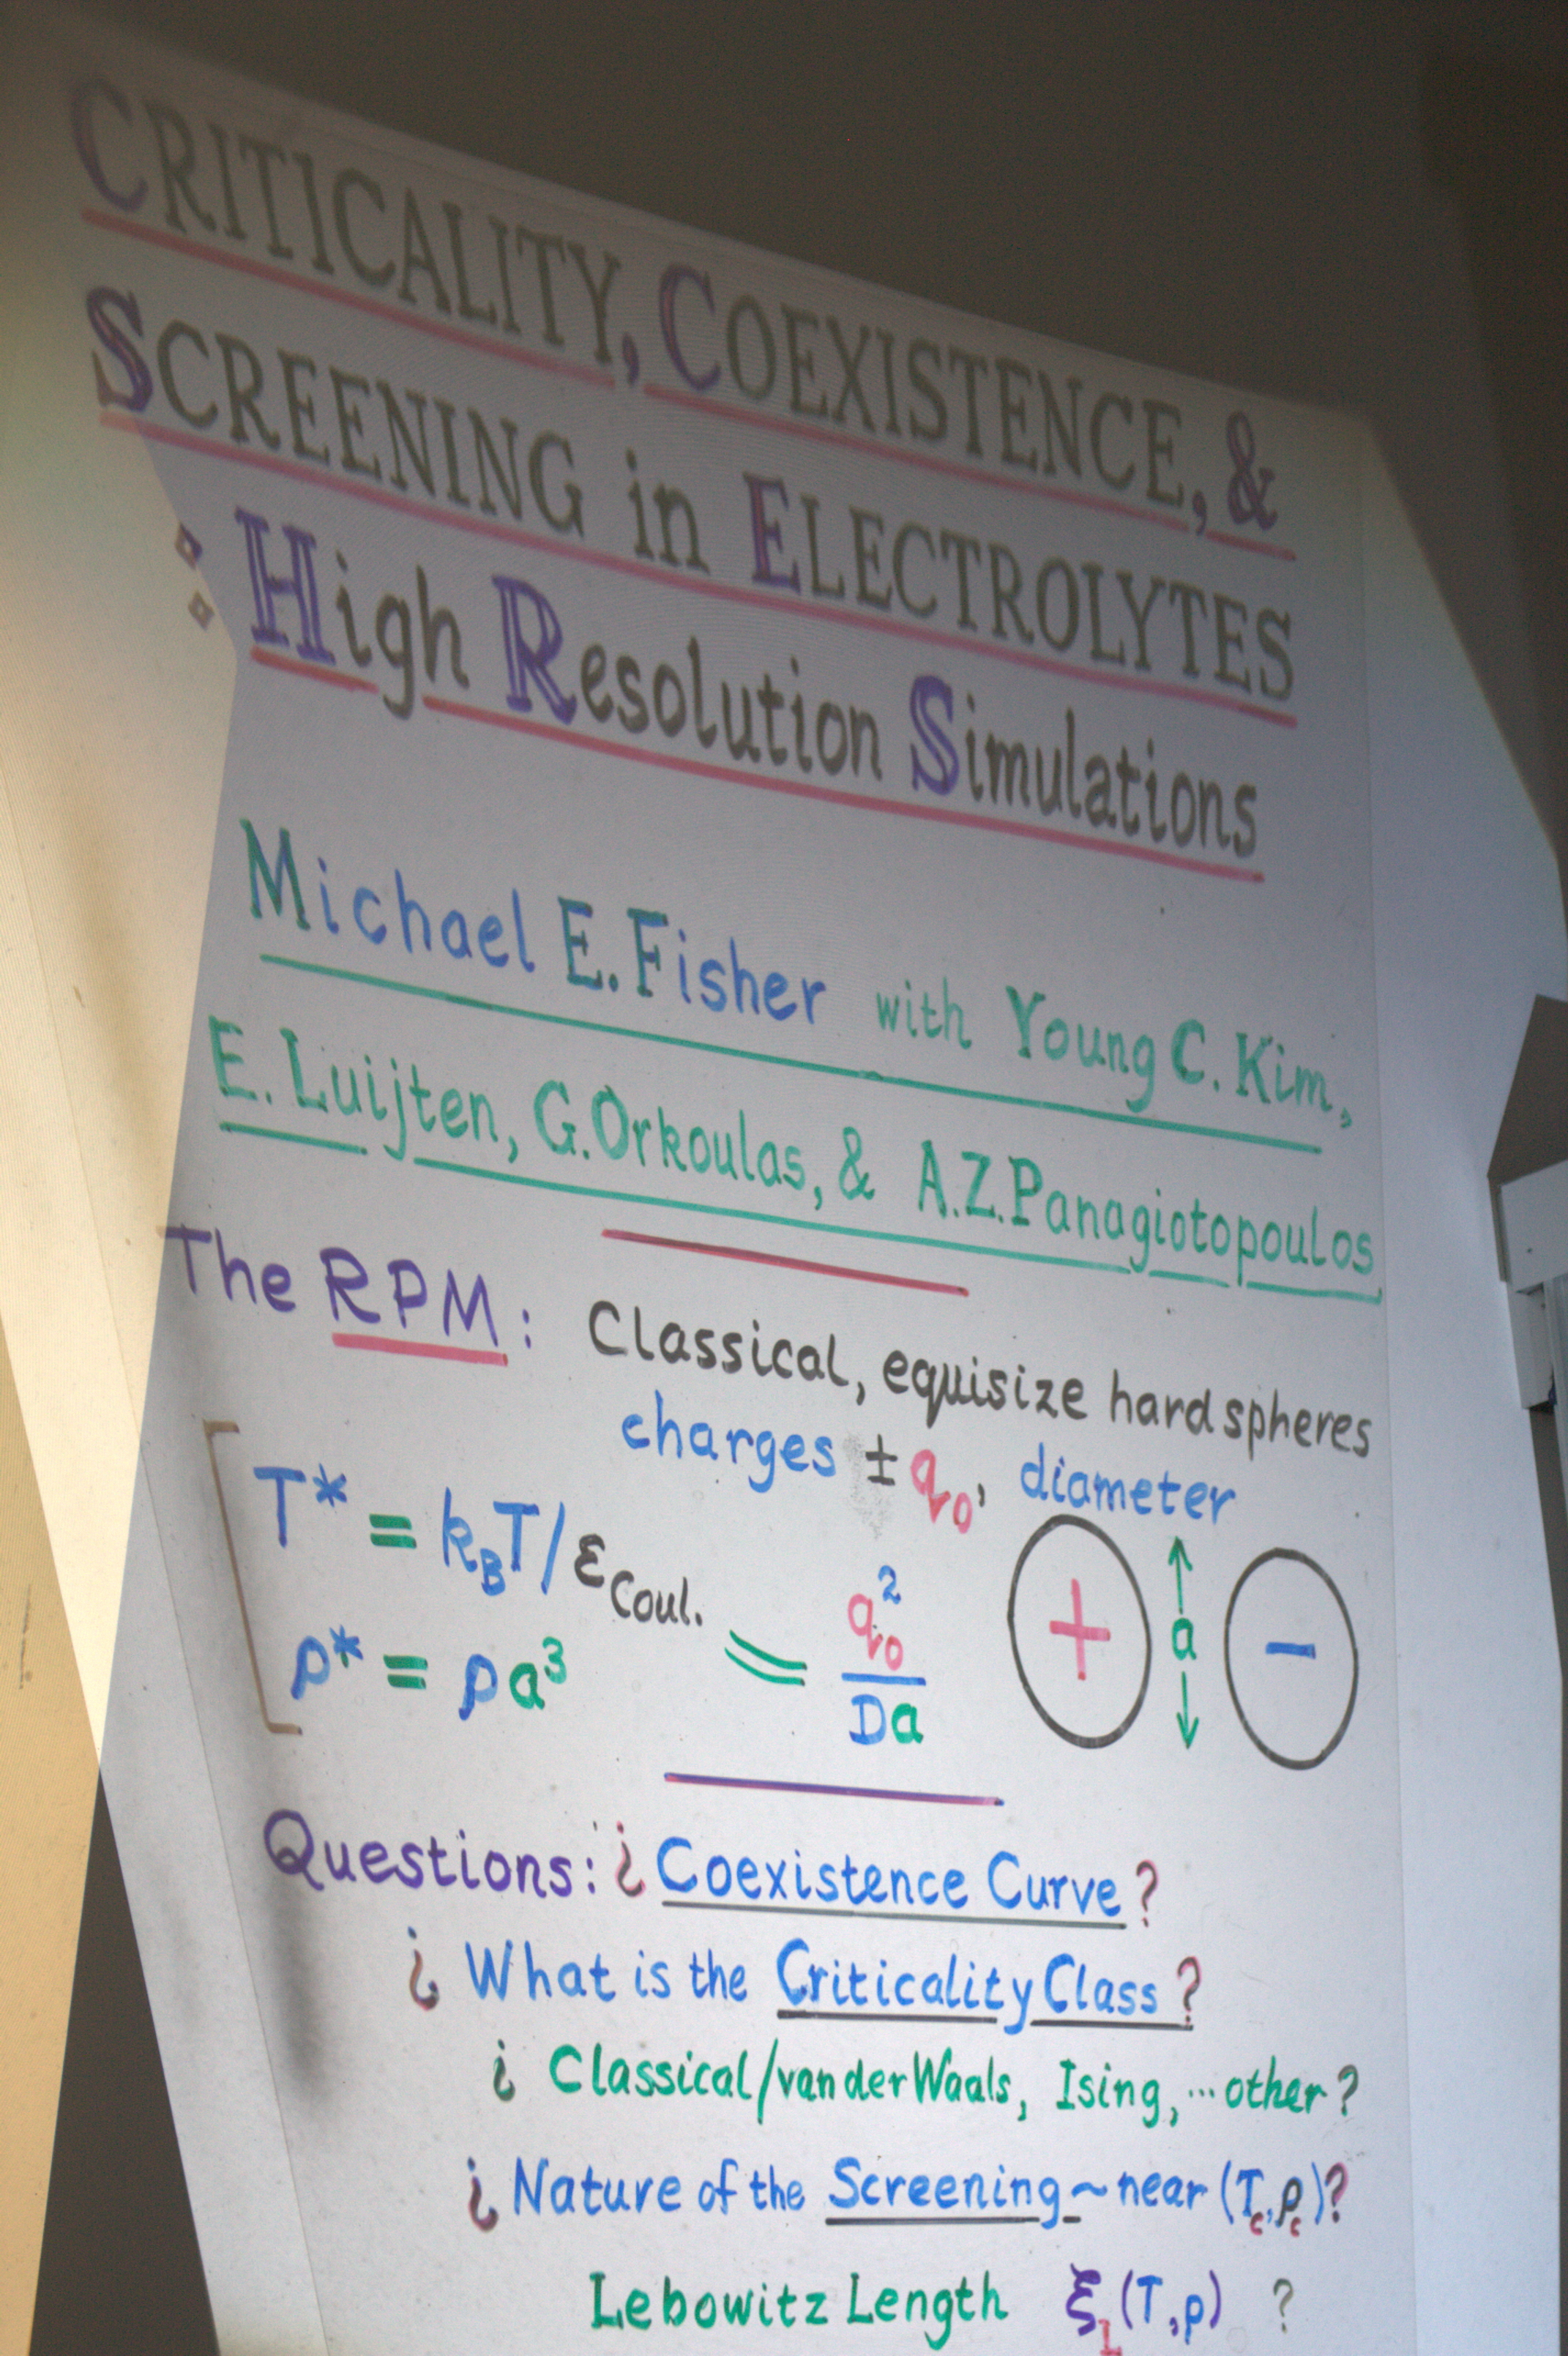 CRITICALITY, COEXISTENCE, &
SCREENING in ELECTROLYTES
: High Resolution Simulations
Michael E. Fisher with Young C. Kim,
E. Luijten, G. Orkoulas, & A.Z. Panagiotopoulos
The RPM: Classical, equisize hard spheres
charges ± q₀, diameter
T* = k_BT/ε_Coul. = q₀²/Da
+ ↑a↓ −
ρ* = ρa³
Questions: ¿ Coexistence Curve?
¿ What is the Criticality Class?
¿ Classical/van der Waals, Ising, ... other?
¿ Nature of the Screening ~ near (T_c, ρ_c)?
Lebowitz Length ξ_L(T,ρ) ?